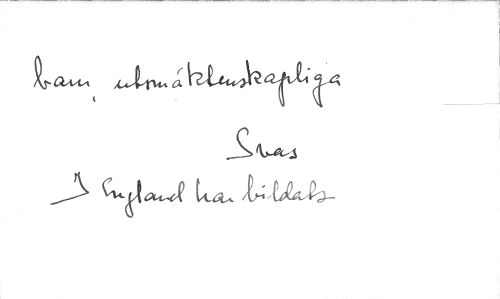 barn, utomäktenskapliga
Svas
I England har bildats